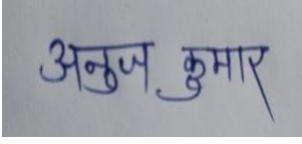 अनुज कुमार